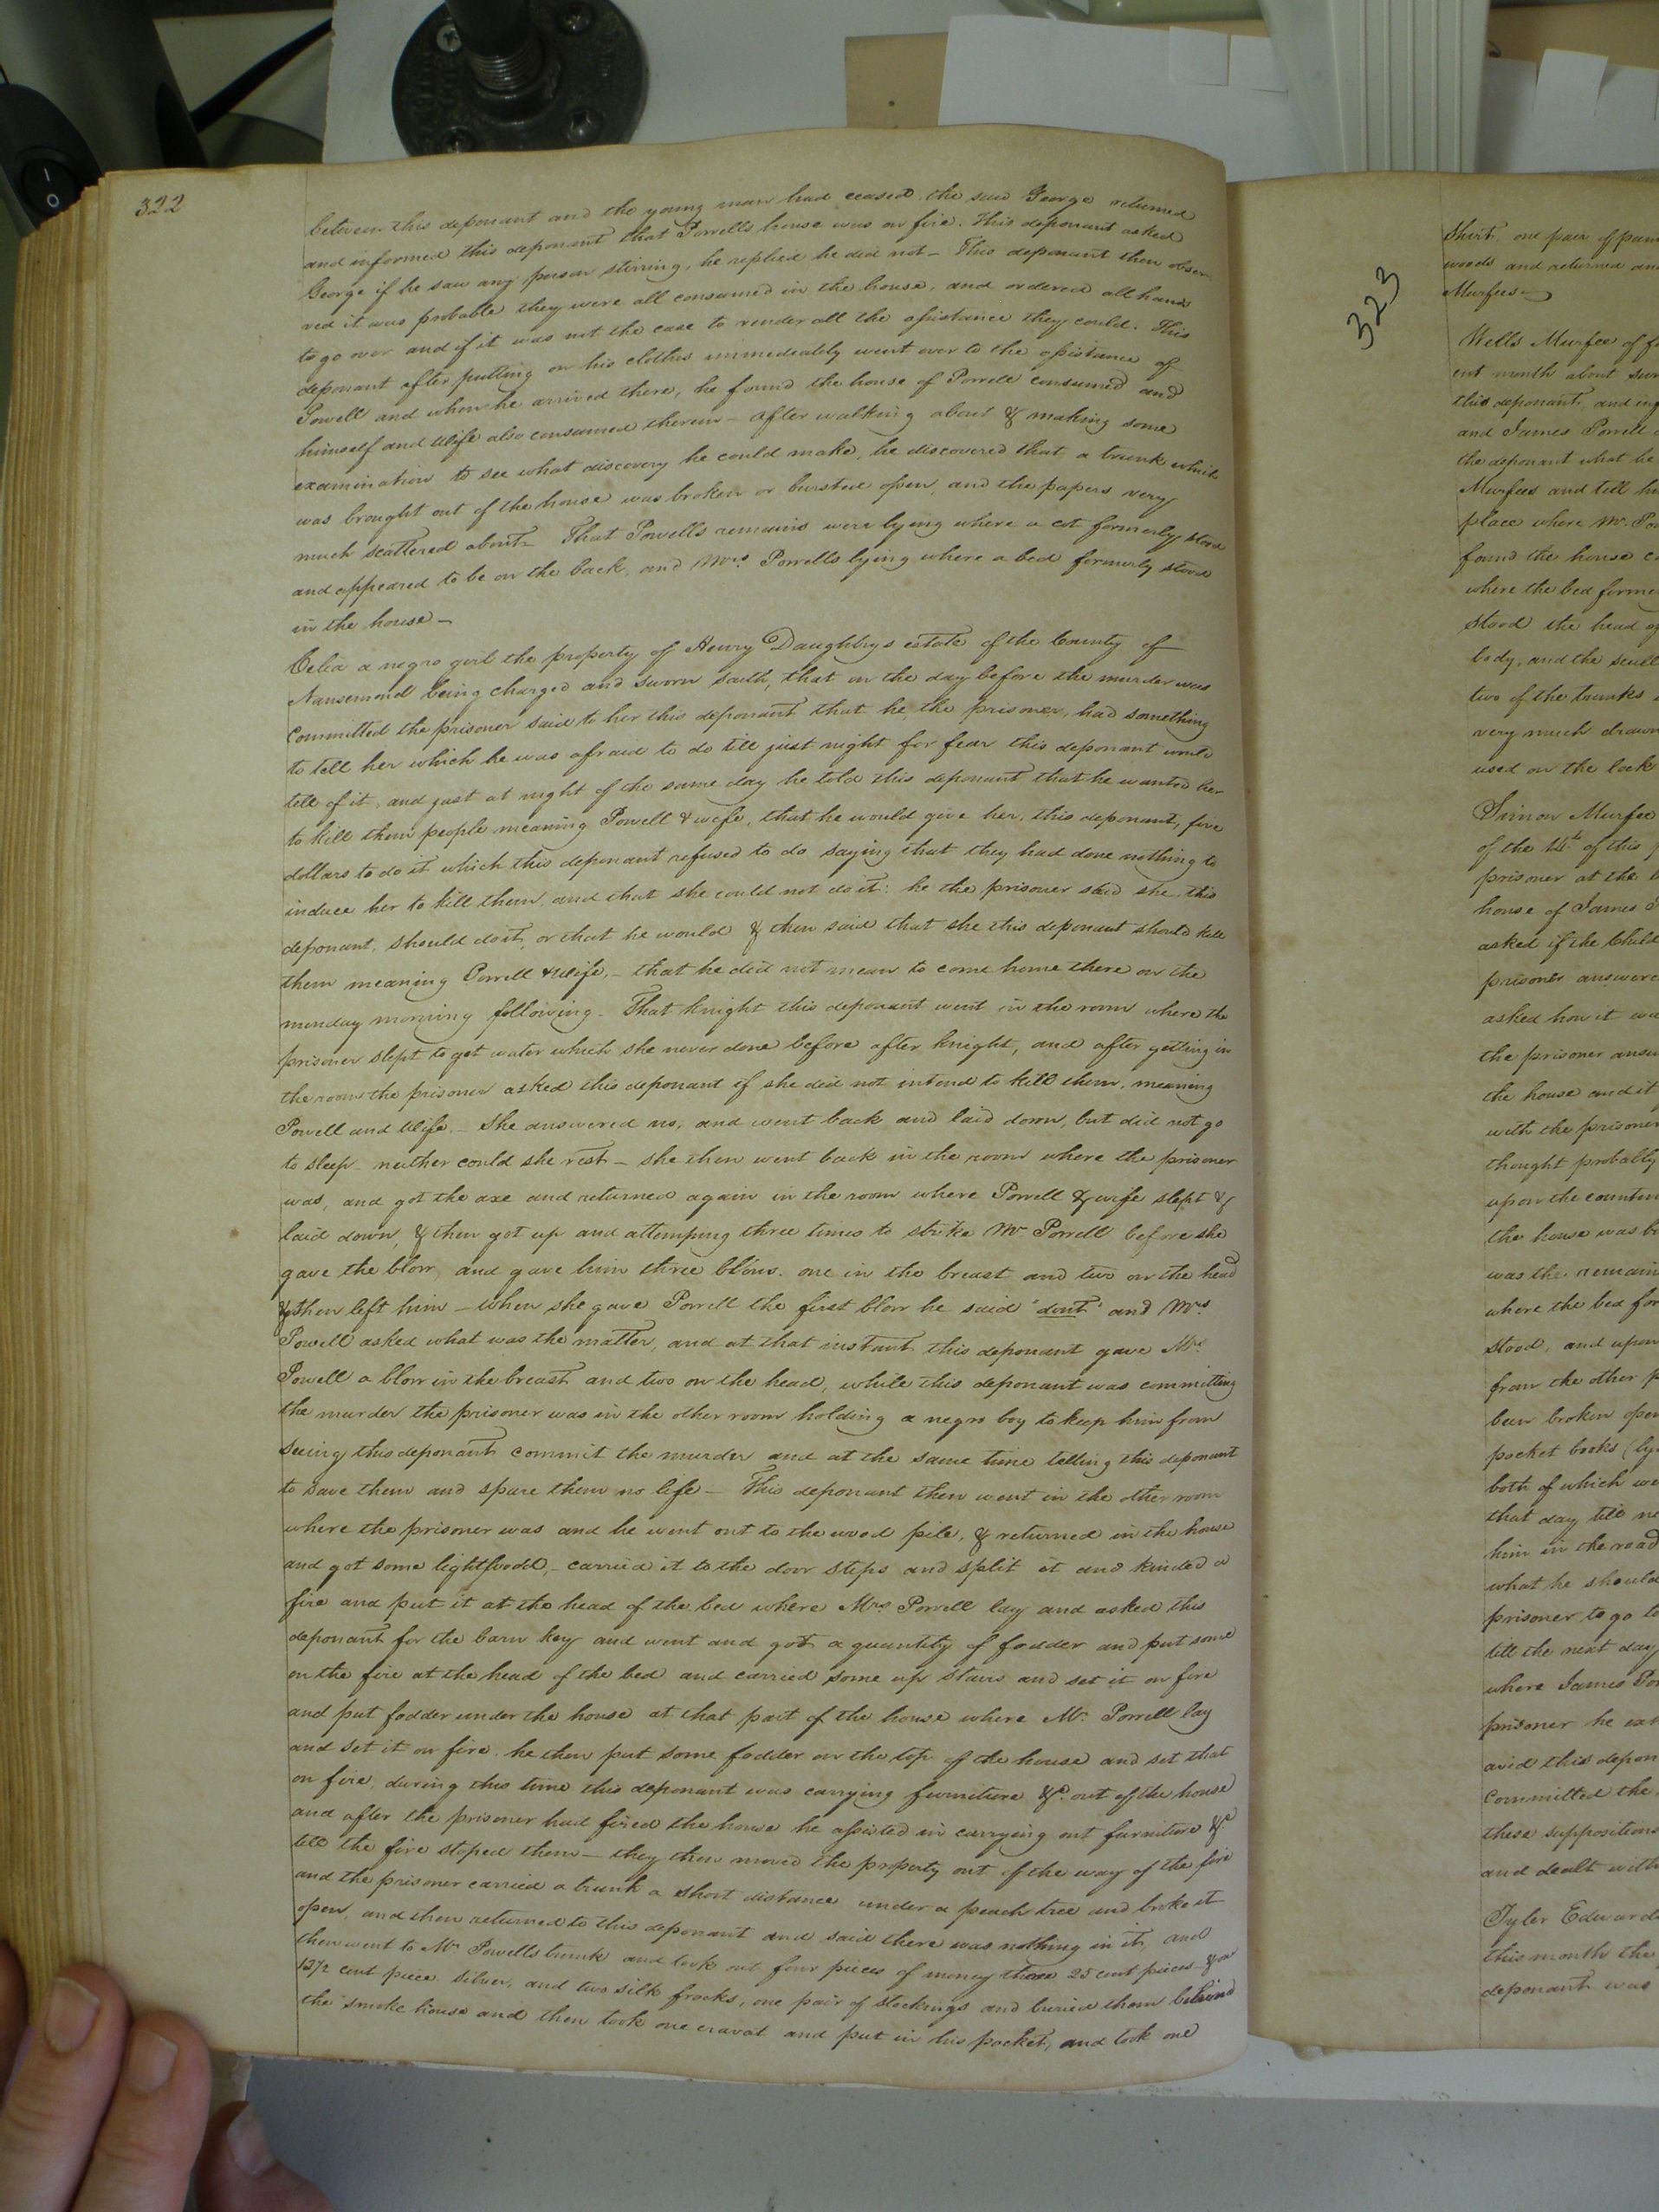 322
between this deponant and the young man had ceased the said George returned
and informed this deponant that Powells house was on fire. This deponant asked
George if he saw any person stirring, he replied he did not – This deponant then obser
ved it was probable they were all consumed in the house, and ordered all hands
to go over and if it was not the case to render all the assistance they could. This
deponant after putting on his clothes immediately went over to the assistance of
Powell and when he arrived there, he found the house of Powell consumed and
himself and Wife also consumed therein – after walking about & making some
examination to see what discovery he could make, he discovered that a trunk which
was brought out of the house was broken or bursted open, and the papers very
much scattered about – That Powells remains were lying where a cot formerly stood
and appeared to be on the back, and Mrs. Powells lying where a bed formerly stood
in the house –
Celia a negro girl the property of Henry Daughtrys estate of the County of
Nansemond being charged and sworn saith, that on the day before the murder was
committed the prisoner said to her this deponant that he, the prisoner, had something
to tell her which he was afraid to do till just night for fear this deponant would
tell of it, and just at night of the same day he told this deponant that he wanted her
to kill them people meaning Powell & wife, that he would give her, this deponant, five
dollars to do it which this deponant refused to do saying that they had done nothing to
induce her to kill them, and that she could not do it: he the prisoner said she, this
deponant, should do it, or that he would & then said that she this deponant should kill
them meaning Powell & Wife, – that he did not mean to come home there on the
monday morning following. That knight this deponant went in the room where the
prisoner slept to get water which she never done before after knight, and after getting in
the room the prisoner asked this deponant if she did not intend to kill them, meaning
Powell and Wife. – She answered no, and went back and laid down, but did not go
to sleep – neither could she rest – she then went back in the room where the prisoner
was, and got the axe and returned again in the room where Powell & wife slept &
laid down, & then got up and attemping three times to strike Mr. Powell before she
gave the blow, and gave him three blows. one in the breast and two on the head
& then left him – when she gave Powell the first blow he said "dont" and Mrs.
Powell asked what was the matter, and at that instant this deponant gave Mrs.
Powell a blow in the breast and two on the head, while this deponant was committing
the murder the prisoner was in the other room holding a negro boy to keep him from
seeing this deponant commit the murder and at the same time telling this deponant
to save them and spare them no life – This deponant then went in the other room
where the prisoner was and he went out to the wood pile, & returned in the house
and got some lightwood – carried it to the door steps and split it and kinded a
fire and put it at the head of the bed where Mrs. Powell lay and asked this
deponant for the barn key and went and got a quantity of fodder and put some
on the fire at the head of the bed and carried some up stairs and set it on fire
and put fodder under the house at that part of the house where Mr. Powell lay
and set it on fire. he then put some fodder on the top of the house and set that
on fire, during this time this deponant was carrying furniture &c. out of the house
and after the prisoner had fired the house he assisted in carrying out furniture &c
till the fire stoped them – they then moved the property out of the way of the fire
and the prisoner carried a trunk a short distance under a peach tree and broke it
open, and then returned to this deponant and said there was nothing in it, and
then went to Mr. Powells trunk and took out four pieces of money three 25 cent pieces & a
12 1/2 cent piece silver, and two silk frocks, one pair of stockings and buried them behind
the smoke house and then took one cravat and put in his pocket, and took one
323
Shirt, one pair of
woods and returned
Murfees –
Wells Murfee of
ent month about
this deponant, and
and James Powell
the deponant what he
Murfees and tell
place where Mr.
found the house
where the bed
stood the head
body, and the scull
two of the trunks
very much
used on the lock
Simon Murfee
of the 14th of this
prisoner at the
house of James
asked if the
prisoner
asked how it
the prisoner
the house and it
with the prisoner
thought probably
upon the
the house was
was the
where the bed
stood, and upon
from the other
been broken open
pocket books
both of which
that day till
him in the road
what he should
prisoner to go
till the next day
where James
prisoner he
this
Committed the
these suppositions
and dealt
Tyler
this month the
deponant was